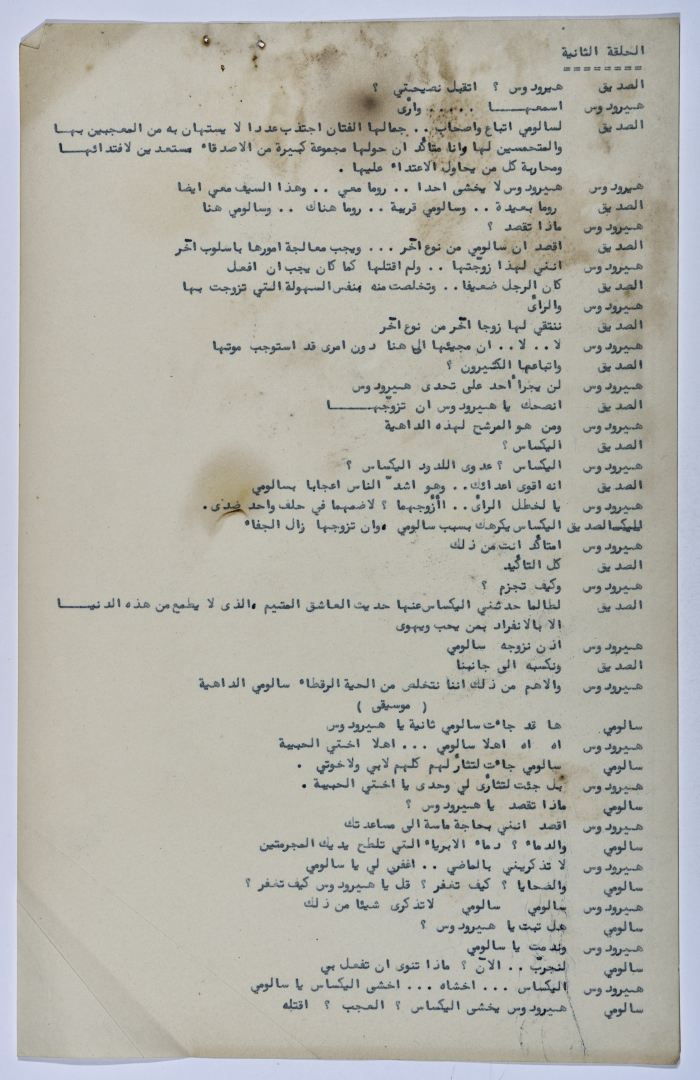 الحلقة الثانية
========
الصديق هيرودوس ؟ اتقبل نصيحتي ؟
هيرودوس اسمعهــــا ..... وأرى
الصديق لسالومي اتباع واصحاب .. جمالها الفتان اجتذب عددا لا يستهان به من المعجبين بهـا
والمتحمسين لها وانا متأكد ان حولها مجموعة كبيرة من الاصدقاء مستعدين لافتدائهـــا
ومحاربة كل من يحاول الاعتداء عليها .
هيرودوس هيرودوس لا يخشى احدا .. روما معي .. وهذا السيف معي ايضا
الصديق روما بعيدة .. وسالومي قريبة .. روما هناك .. وسالومي هنا
هيرودوس ماذا تقصد ؟
الصديق اقصد ان سالومي من نوع آخر ... ويجب معالجة امورها باسلوب آخر
هيرودوس انني لهذا زوّجتها .. ولم اقتلها كما كان يجب ان افعل
الصديق كان الرجل ضعيفا .. وتخلصت منه بنفس السهولة التي تزوجت بها
هيرودوس والرأى
الصديق ننتقي لها زوجا آخر من نوع آخر
هيرودوس لا .. لا .. ان مجيئها الى هنا دون امرى قد استوجب موتها
الصديق واتباعها الكثيرون ؟
هيرودوس لن يجرأ أحد على تحدى هيرودوس
الصديق انصحك يا هيرودوس ان تزوّجهــــــا
هيرودوس ومن هو المرشح لهذه الداهية
الصديق اليكساس ؟
هيرودوس اليكساس ؟ عدوى اللدود اليكساس ؟
الصديق انه اقوى اعدائك .. وهو اشدّ الناس اعجابا بسالومي
هيرودوس يا لخطل الرأى .. أأزوجهما ؟ لاضمهما في حلف واحد ضدى .
الصديق اليكساس يكرهك بسبب سالومي ، وان تزوجها زال الجفاء
هيرودوس امتأكد انت من ذلك
الصديق كل التأكيد
هيرودوس وكيف تجزم ؟
الصديق لطالما حدثني اليكساس عنها حديث العاشق المتيم ، الذى لا يطمع من هذه الدنيـــا
الا بالانفراد بمن يحب ويهوى
هيرودوس اذن نزوجه سالومي
الصديق ونكسبه الى جانبنا
هيرودوس والاهم من ذلك اننا نتخلص من الحية الرقطاء سالومي الداهية
( موسيقى )
سالومي ها قد جاءت سالومي ثانية يا هيرودوس
هيرودوس اه اه اهلا سالومي ... اهلا اختي الحبيبة
سالومي سالومي جاءت لتثأر لهم كلهم لابي ولاخوتي .
هيرودوس بل جئت لتثأرى لي وحدى يا اختي الحبيبة .
سالومي ماذا تقصد يا هيرودوس ؟
هيرودوس اقصد انني بحاجة ماسة الى مساعدتك
سالومي والدماء ؟ دماء الابرياء التي تلطخ يديك المجرمتين
هيرودوس لا تذكريني بالماضي .. اغفرى لي يا سالومي
سالومي والضحايا ؟ كيف تغفر ؟ قل يا هيرودوس كيف تغفر ؟
هيرودوس سالومي سالومي لا تذكرى شيئا من ذلك
سالومي هل تبت يا هيرودوس ؟
هيرودوس وندمت يا سالومي
سالومي لنجرّب .. الآن ؟ ماذا تنوى ان تفعل بي
هيرودوس اليكساس ... اخشاه ... اخشى اليكساس يا سالومي
سالومي هيرودوس يخشى اليكساس ؟ العجب ؟ اقتله